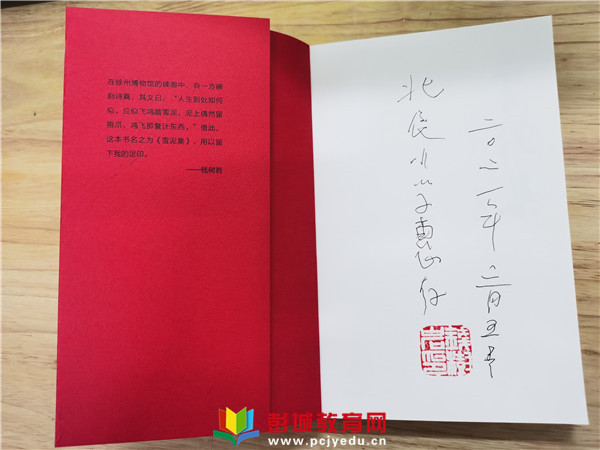 在徐州博物馆的碑廊中，有一方碑
刻诗篇，其文曰，“人生到处如何
似，应似飞鸿踏雪泥，泥上偶然留
指爪，鸿飞那复计东西。”借此，
这本书名之为《雪泥集》，用以留
下我的足印。
——钱树岩
小学惠存
二〇二一年
彭城教育网
www.pcjyedu.cn